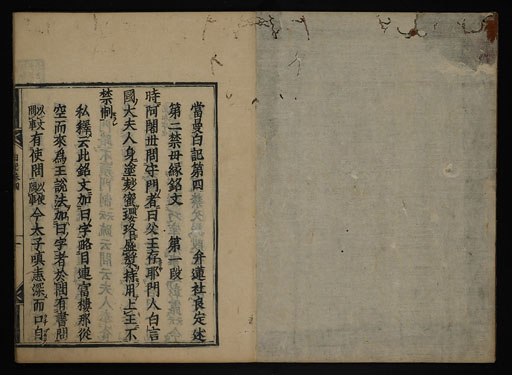 當曼白記第四 弁蓮社良定述
第二禁母縁銘文 第一段
時阿闍世問守門者曰父王存耶門人白言
國大夫人身塗麨蜜瓔珞盛漿持用上王不
禁制
私釋云此縁銘文加日字略目連富樓那從
空而來為王說法加日字者於闇有書問
有使問 今太子嗔恚深而口自